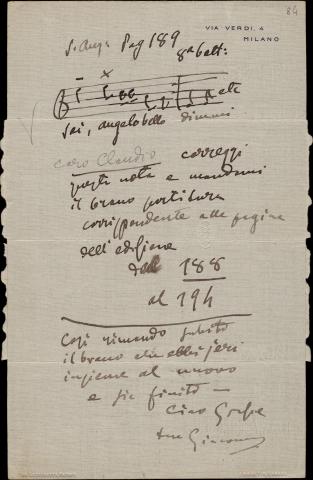 84
VIA VERDI, 4
MILANO
S. Ang. Pag 189
8ª batt:
etc
Sai, angelo bello dimmi
caro Claudio correggi
questa nota e mandami
il brano partitura
corrispondente alle pagine
dell'edizione
dal 188
al 194
Così rimando subito
il brano che ebbi jeri
insieme al nuovo
e già finito —
Ciao
tuo Giacomo